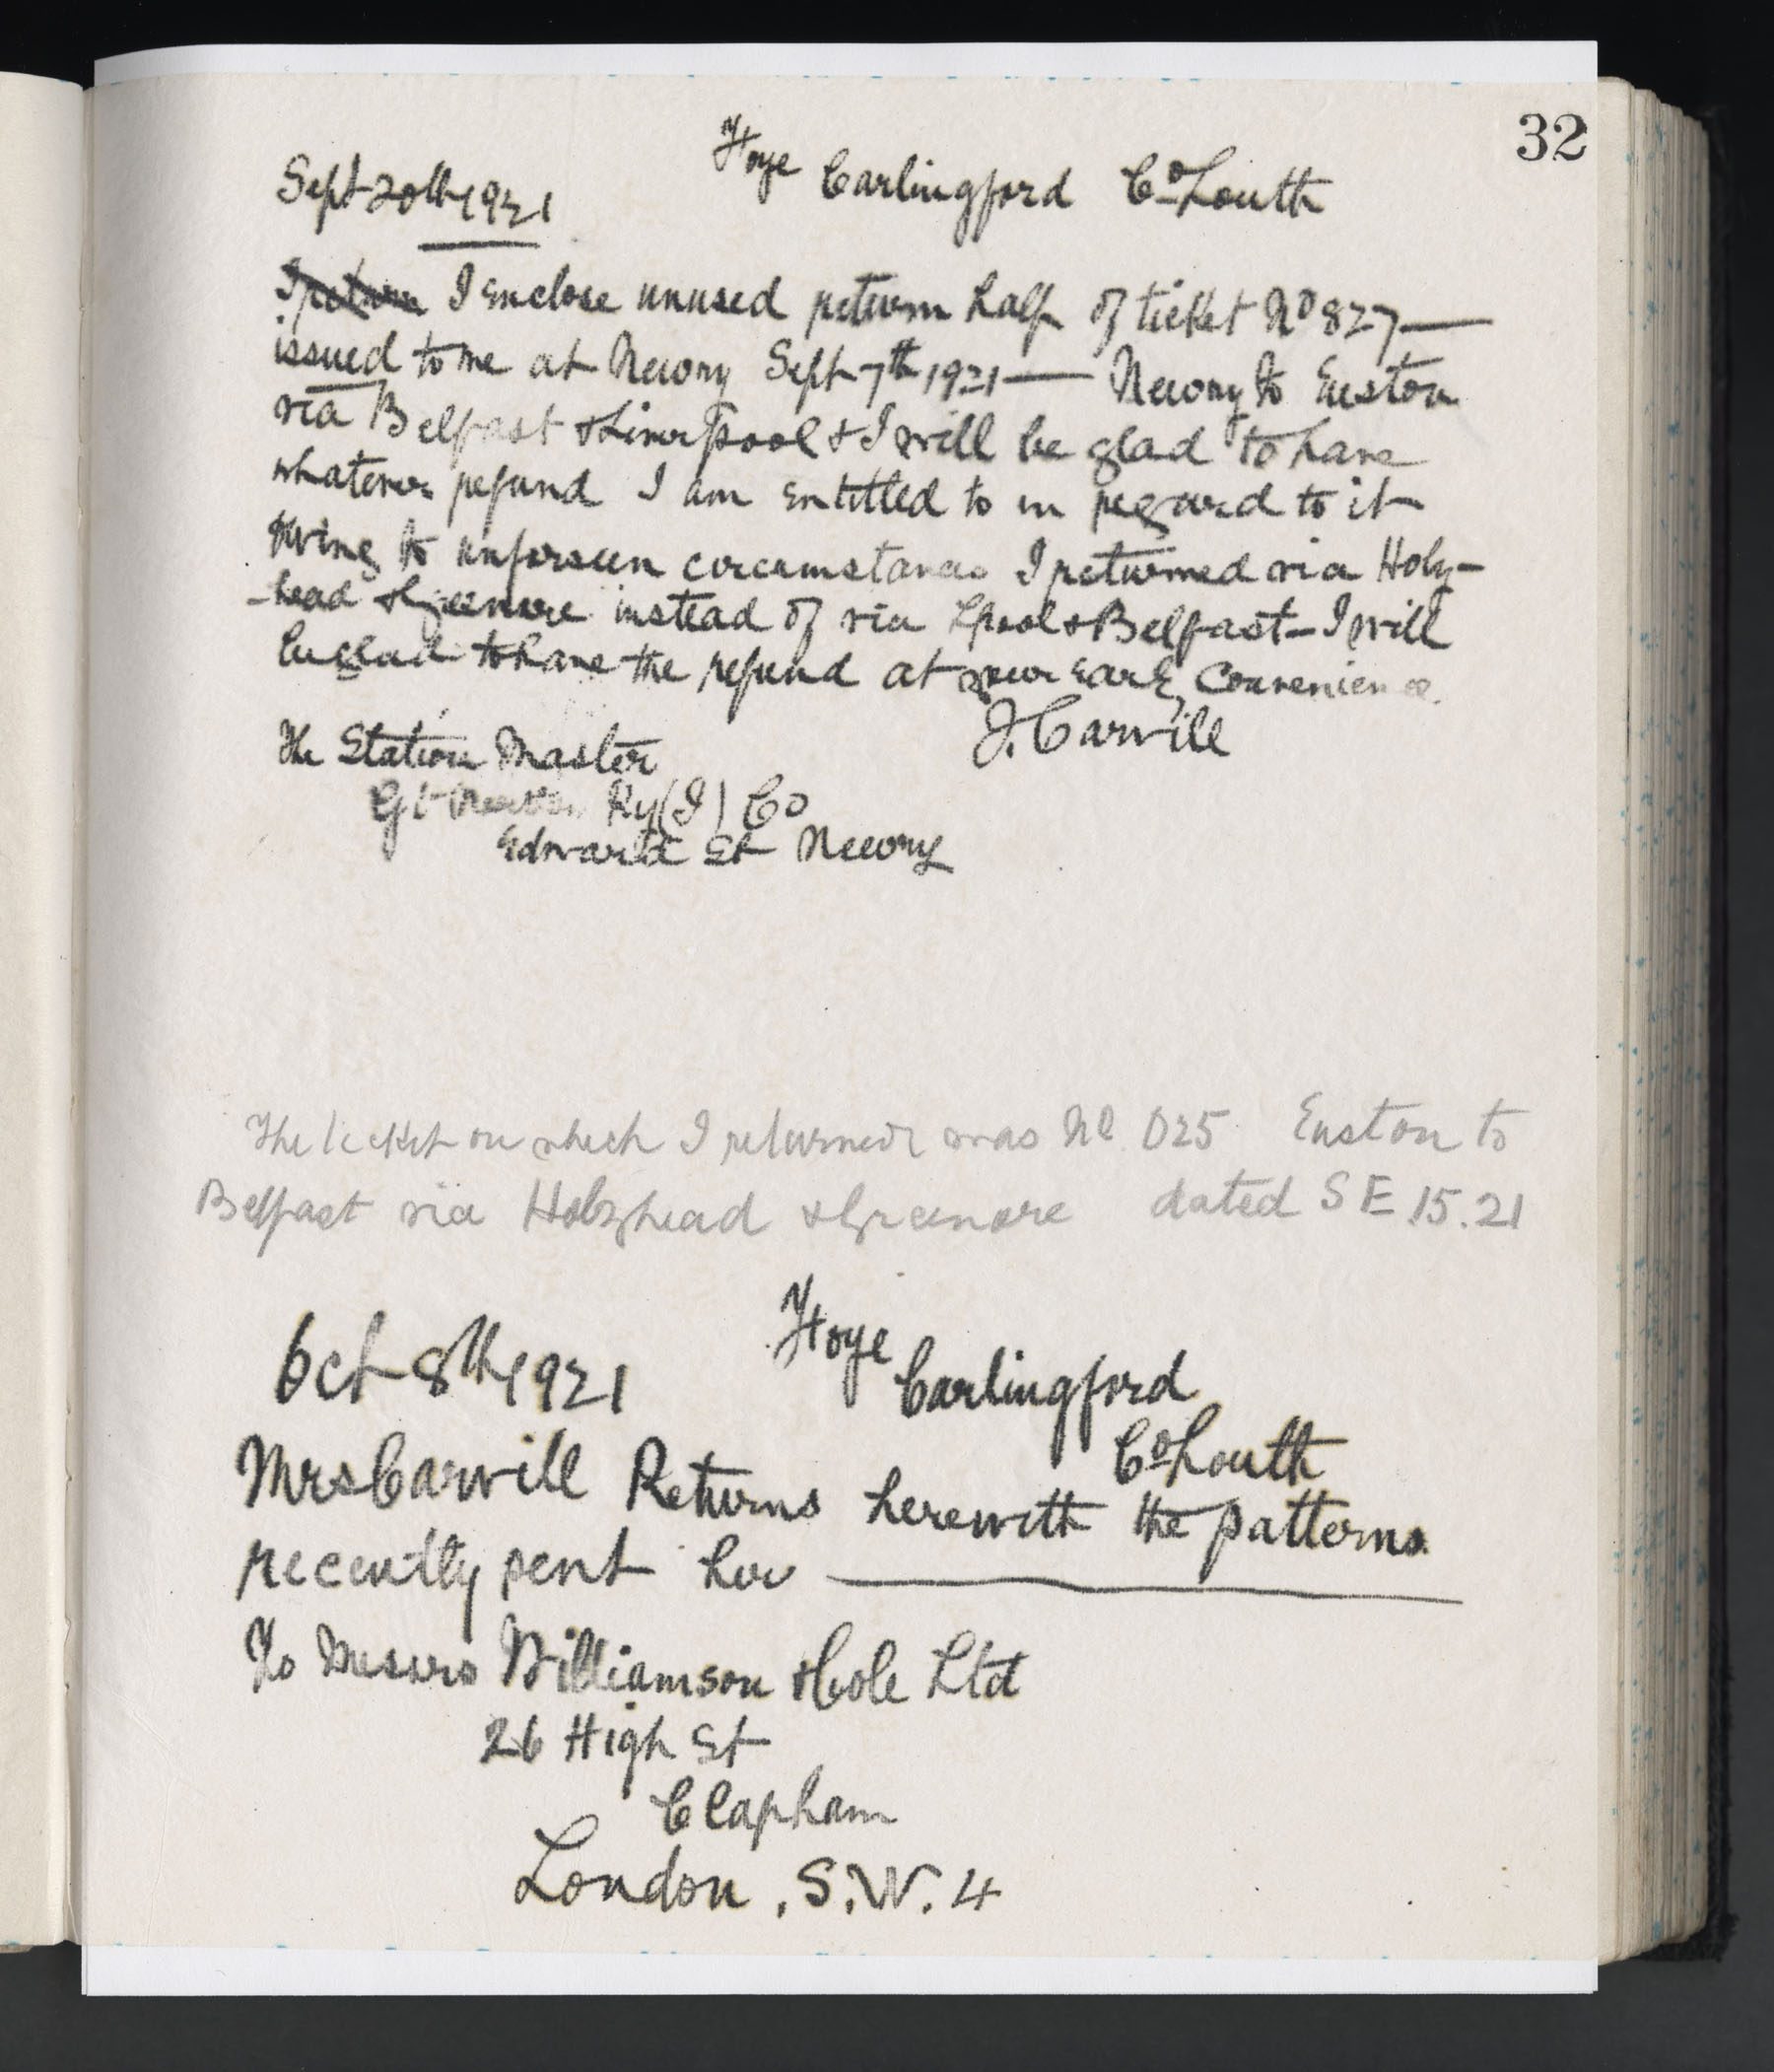 32
Hoye Carlingford Co Louth
Sept 20th 1921
I return I Enclose unused return half of ticket No 827 —
issued to me at Newry Sept 7th 1921 — Newry to Euston
via Belfast & Liverpool & I will be glad to have
whatever refund I am Entitled to in regard to it
Owing to unforseen circumstances I returned via Holy-
-head & Greenore instead of via Lpool & Belfast — I will
be glad to have the refund at your Early Convenience.
J. Carvill
The Station Master
Gt Northn Ry (I) Co
Edward St Newry
The ticket on which I returned was No 025 Euston to
Belfast via Holyhead & Greenore dated SE 15.21
Hoye
Oct 8th 1921 Carlingford
Co Louth
Mrs Carvill Returns herewith the patterns
recently sent her —
To Messrs Williamson & Cole Ltd
26 High St
Clapham
London, S.W. 4